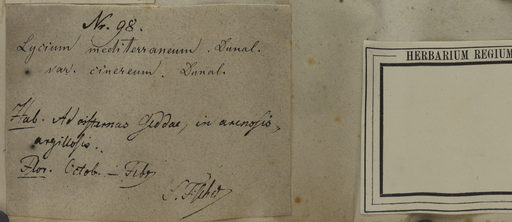 Nr. 98.
Lycium mediterraneum. Dunal.
var. cinereum. Dunal.
Hab. Ad cisternas Geddae, in arenosis,
argillosis.
Flor. Octob. – Febr
HERBARIUM REGIUM